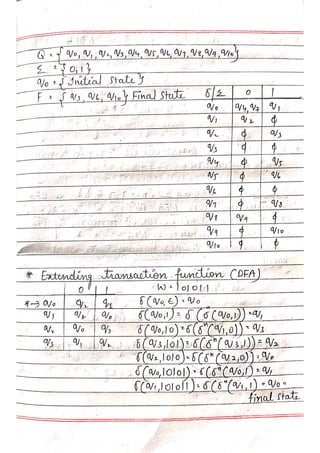 Q = { q0, q1, q2, q3, q4, q5, q6, q7, q8, q9, q10}
Σ = { 0, 1 }
q0 = { Initial state }
F = { q3, q6, q10 } Final State
δ/Σ 0 1
q0 q4, q7 q1
q1 q2 ϕ
q2 ϕ q3
q3 ϕ ϕ
q4 ϕ q5
q5 ϕ q6
q6 ϕ ϕ
q7 ϕ q8
q8 q9 ϕ
q9 ϕ q10
q10 ϕ ϕ
* Extending transaction function (DFA)
0 1 W = 101011
*→ q0 q2 q1 δ(q0, ε) = q0
q1 q3 q0 δ(q0, 1) = δ(δ(q0, 1)) = q1
q2 q0 q3 δ(q0, 10) = δ(δ^(q1, 0)) = q3
q3 q1 q2 δ(q3, 101) = δ(δ^(q3, 1)) = q2
δ(q2, 1010) = δ(δ^(q2, 0)) = q0
δ(q0, 10101) = δ(δ^(q0, 1) = q1
δ(q1, 101011) = δ(δ^(q1, 1) = q0 =
final state